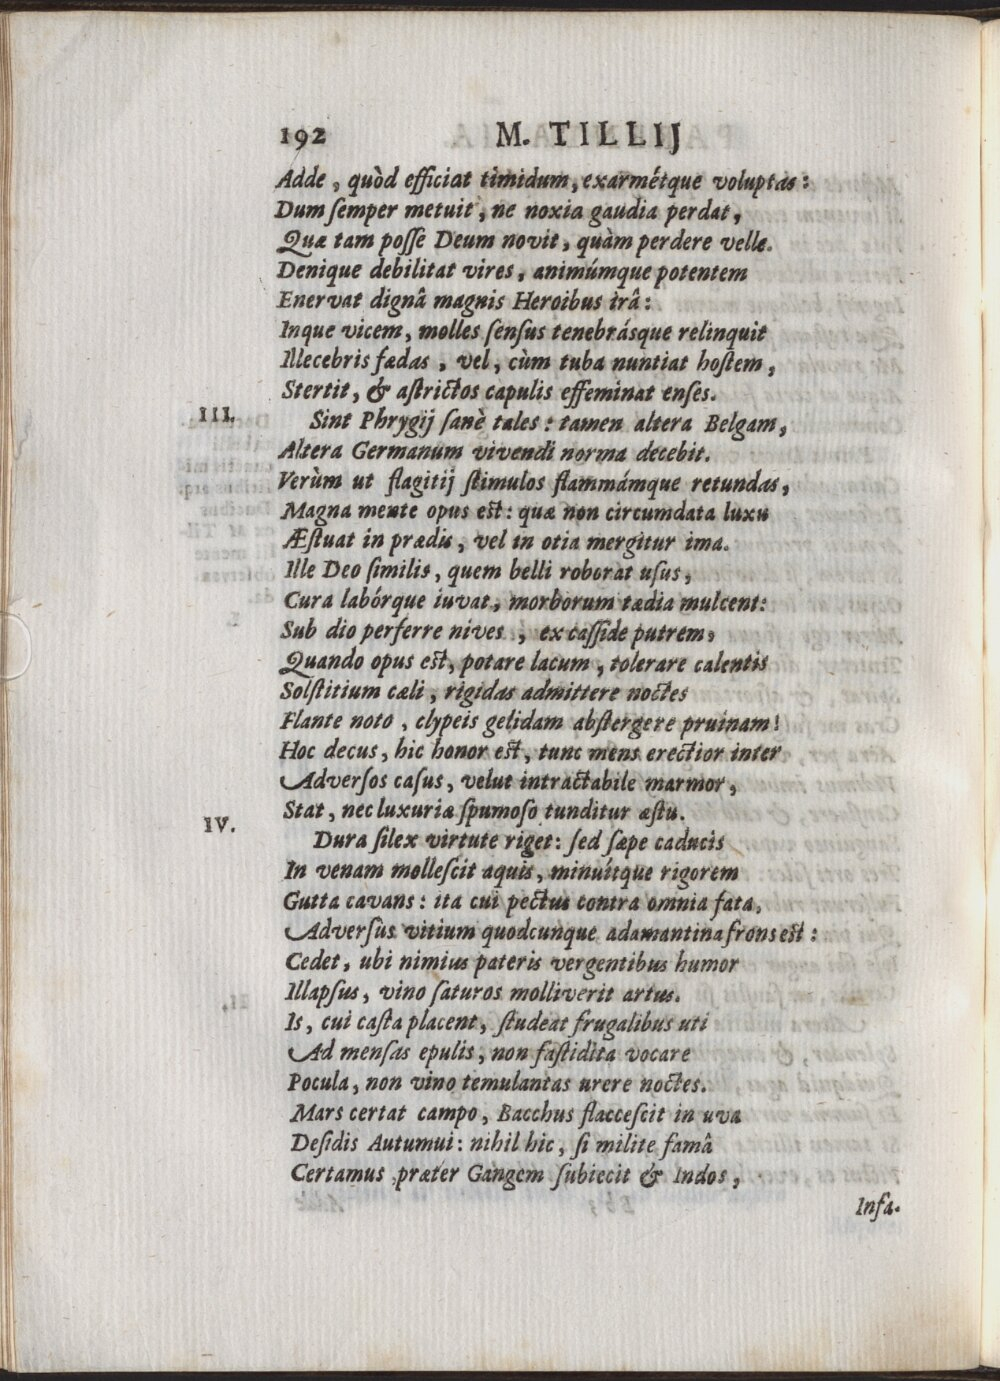 192 M. TILLIJ
Adde, quòd efficiat timidum, exarmétque voluptas:
Dum ſemper metuit, ne noxia gaudia perdat,
Quæ tam poſſe Deum novit, quàm perdere velle.
Denique debilitat vires, animúmque potentem
Enervat dignâ magnis Heroibus irâ:
Inque vicem, molles ſenſus tenebrásque relinquit
Illecebris fædas, vel, cùm tuba nuntiat hoſtem,
Stertit, & aſtrictos capulis effeminat enſes.
III. Sint Phrygij ſanè tales: tamen altera Belgam,
Altera Germanum vivendi norma decebit.
Verùm ut flagitij ſtimulos flammámque retundas,
Magna mente opus eſt: quæ non circumdata luxu
Æſtuat in prædis, vel in otia mergitur ima.
Ille Deo ſimilis, quem belli roborat uſus,
Cura labórque iuvat, morborum tædia mulcent:
Sub dio perferre nives, ex caſſide putrem,
Quando opus eſt, potare lacum, tolerare calentis
Solſtitium cæli, rigidas admittere noctes
Flante noto, clypeis gelidam abſtergere pruinam!
Hoc decus, hic honor eſt, tunc mens erectior inter
Adverſos caſus, velut intractabile marmor,
Stat, nec luxuriæ ſpumoſo tunditur æſtu.
IV. Dura ſilex virtute riget: ſed ſæpe caducis
In venam molleſcit aquis, minuítque rigorem
Gutta cavans: ita cui pectus contra omnia fata,
Adverſùs vitium quodcunque adamantina frons eſt:
Cedet, ubi nimius pateris vergentibus humor
Illapſus, vino ſaturos molliverit artus.
Is, cui caſta placent, ſtudeat frugalibus uti
Ad menſas epulis, non faſtidita vocare
Pocula, non vino temulantas urere noctes.
Mars certat campo, Bacchus flacceſcit in uva
Deſidis Autumui: nihil hic, ſi milite famâ
Certamus præter Gangem ſubiecit & Indos,
Infa-